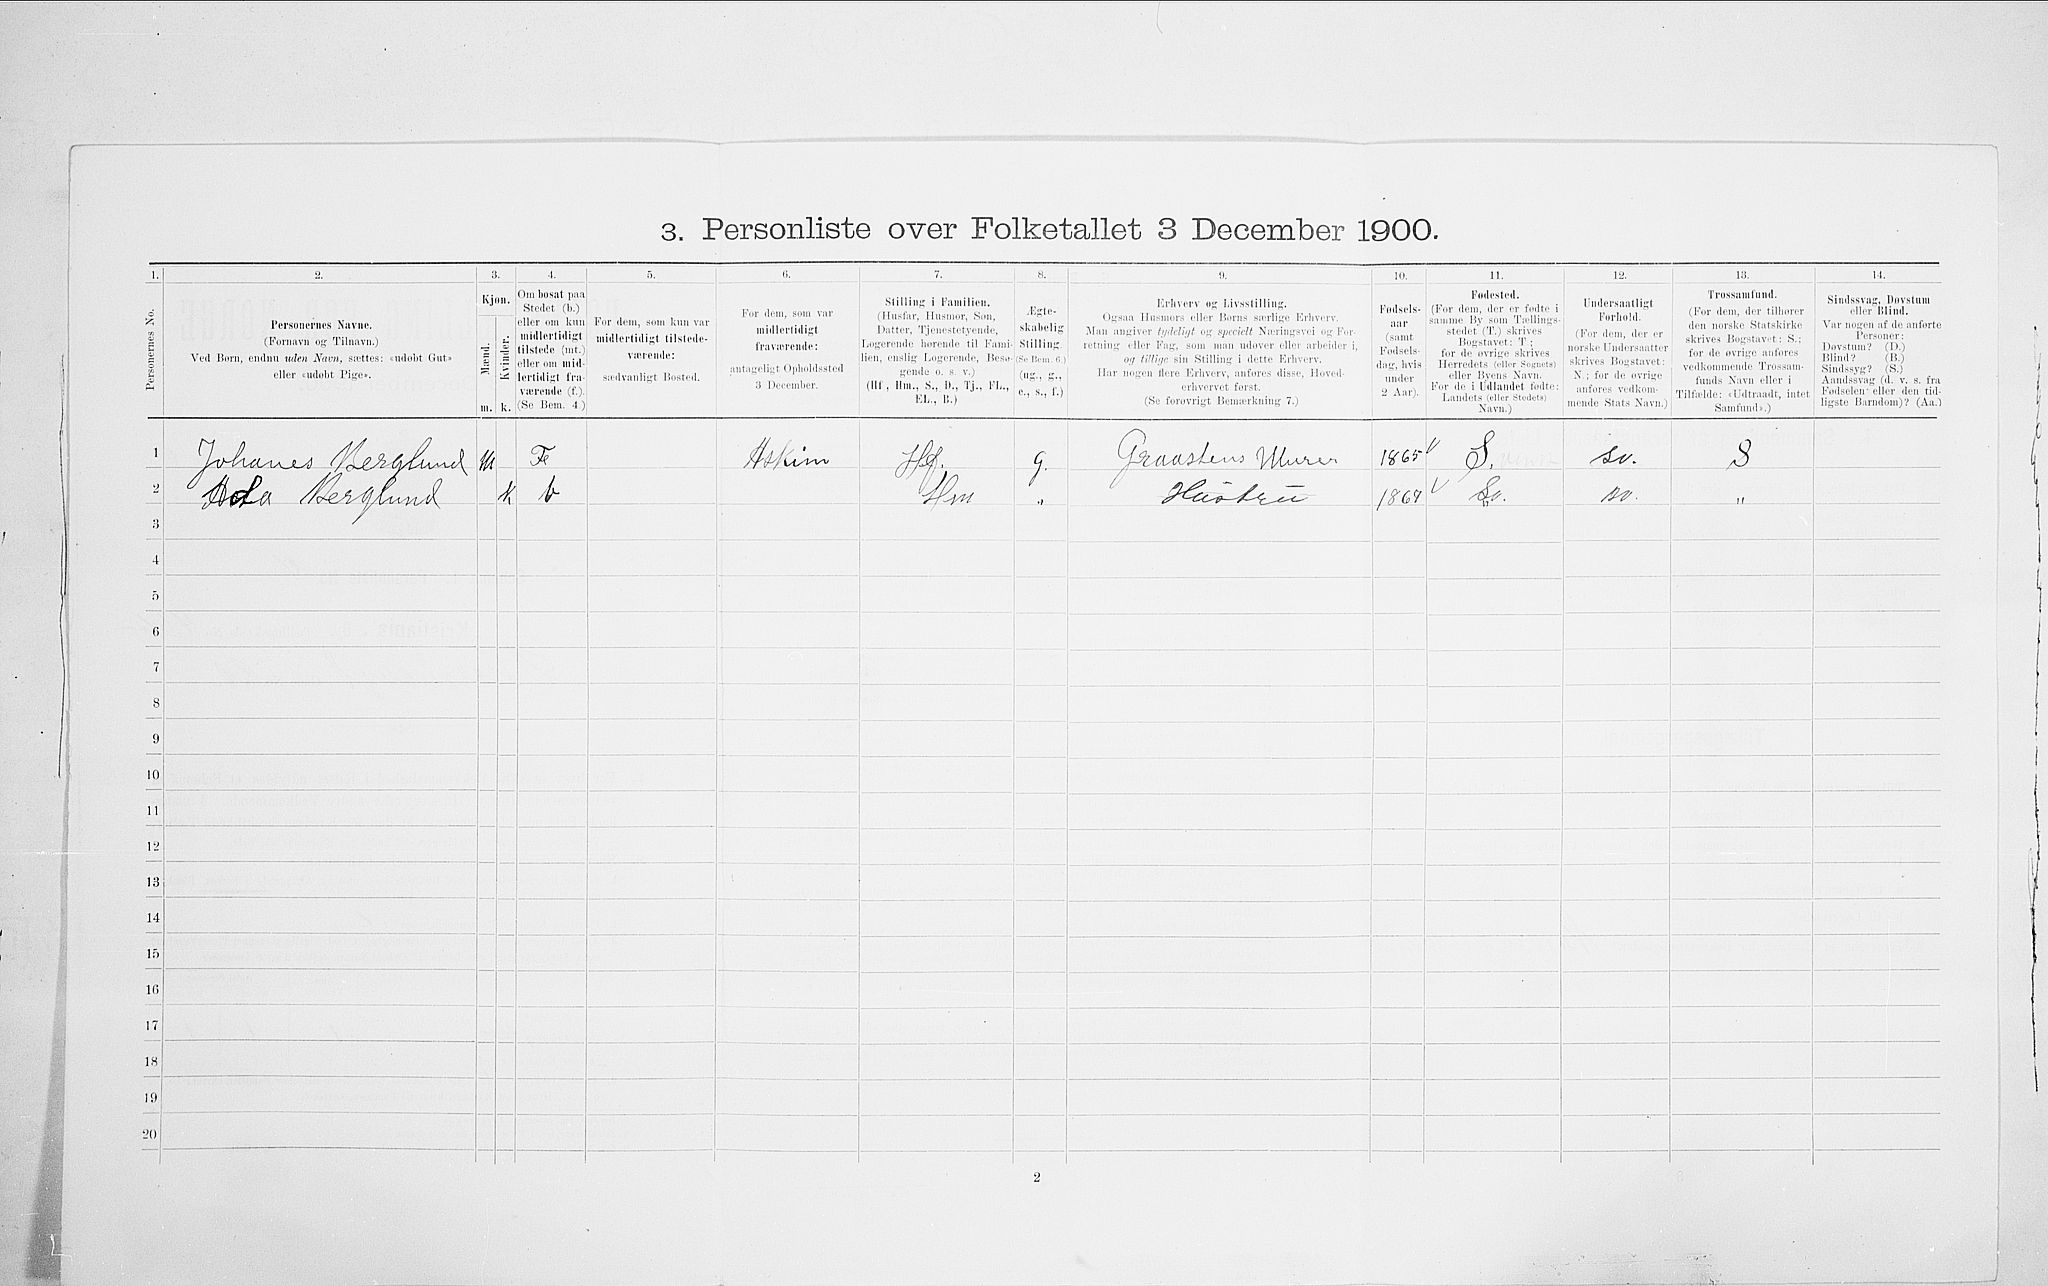 3. Personliste over Folketallet 3 December 1900.
1. 2. 3. 4. 5. 6. 7. 8. 9. 10. 11. 12. 13. 14.
Personernes No.
Personernes Navne.
(Fornavn og Tilnavn.)
Ved Børn, endnu uden Navn, sættes: «udøbt Gut»
eller «udøbt Pige».
Kjøn.
Mænd.
Kvinder.
m. k.
Om bosat paa
Stedet (b.)
eller om kun
midlertidigt
tilstede (mt.)
eller om mid-
lertidigt fra-
værende (f.).
(Se Bem. 4.)
For dem, som kun var
midlertidigt tilstede-
værende:
sædvanligt Bosted.
For dem, som var
midlertidigt
fraværende:
antageligt Opholdssted
3 December.
Stilling i Familien.
(Husfar, Husmor, Søn,
Datter, Tjenestetyende,
Logerende hørende til Fami-
lien, enslig Logerende, Besø-
gende o. s. v.)
(Hf., Hm., S., D., Tj., FL.,
EL., B.)
Ægte-
skabelig
Stilling.
(Se Bem. 6.)
(ug., g.,
e., s., f.)
Erhverv og Livsstilling.
Ogsaa Husmors eller Børns særlige Erhverv.
Man angiver tydeligt og specielt Næringsvei og For-
retning eller Fag, som man udøver eller arbeider i,
og tillige sin Stilling i dette Erhverv.
Har nogen flere Erhverv, anføres disse, Hoved-
erhvervet først.
(Se forøvrigt Bemærkning 7.)
Fødsels-
aar
(samt
Fødsels-
dag, hvis
under
2 Aar).
Fødested.
(For dem, der er fødte i
samme By som Tællings-
stedet (T.) skrives
Bogstavet: T;
for de øvrige skrives
Herredets (eller Sognets)
eller Byens Navn.
For de i Udlandet fødte:
Landets (eller Stedets)
Navn.)
Undersaatligt
Forhold.
(For dem, der er
norske Undersaatter
skrives Bogstavet:
N.; for de øvrige
anføres vedkom-
mende Stats Navn.)
Trossamfund.
(For dem, der tilhører
den norske Statskirke
skrives Bogstavet: S.;
for de øvrige anføres
vedkommende Trossam-
funds Navn eller i
Tilfælde: «Udtraadt, intet
Samfund».)
Sindssvag, Døvstum
eller Blind.
Var nogen af de anførte
Personer:
Døvstum? (D.)
Blind? (B.)
Sindssyg? (S.)
Aandssvag (d. v. s. fra
Fødselen eller den tid-
ligste Barndom)? (Aa.)
1 Johanes Berglund M F Askim Hf. g. Graastens Murer 1865 S. sv. S
2 Berglund K b Hm „ Hustru 1867 Sv. sv. „
3
4
5
6
7
8
9
10
11
12
13
14
15
16
17
18
19
20
2